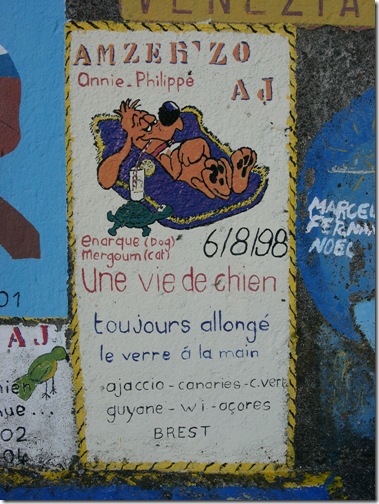 VENEZIA
AMZER'ZO
AJ
Annie-Philippe
enarque (Dog)
mergoum (cat)
6/8/98
une vie de chien
toujours allongé
le verre á la main
ajaccio-canaries-c.vert
guyane-wi-açores
BREST
MARCEL
NOEL
01
AJ
02
04